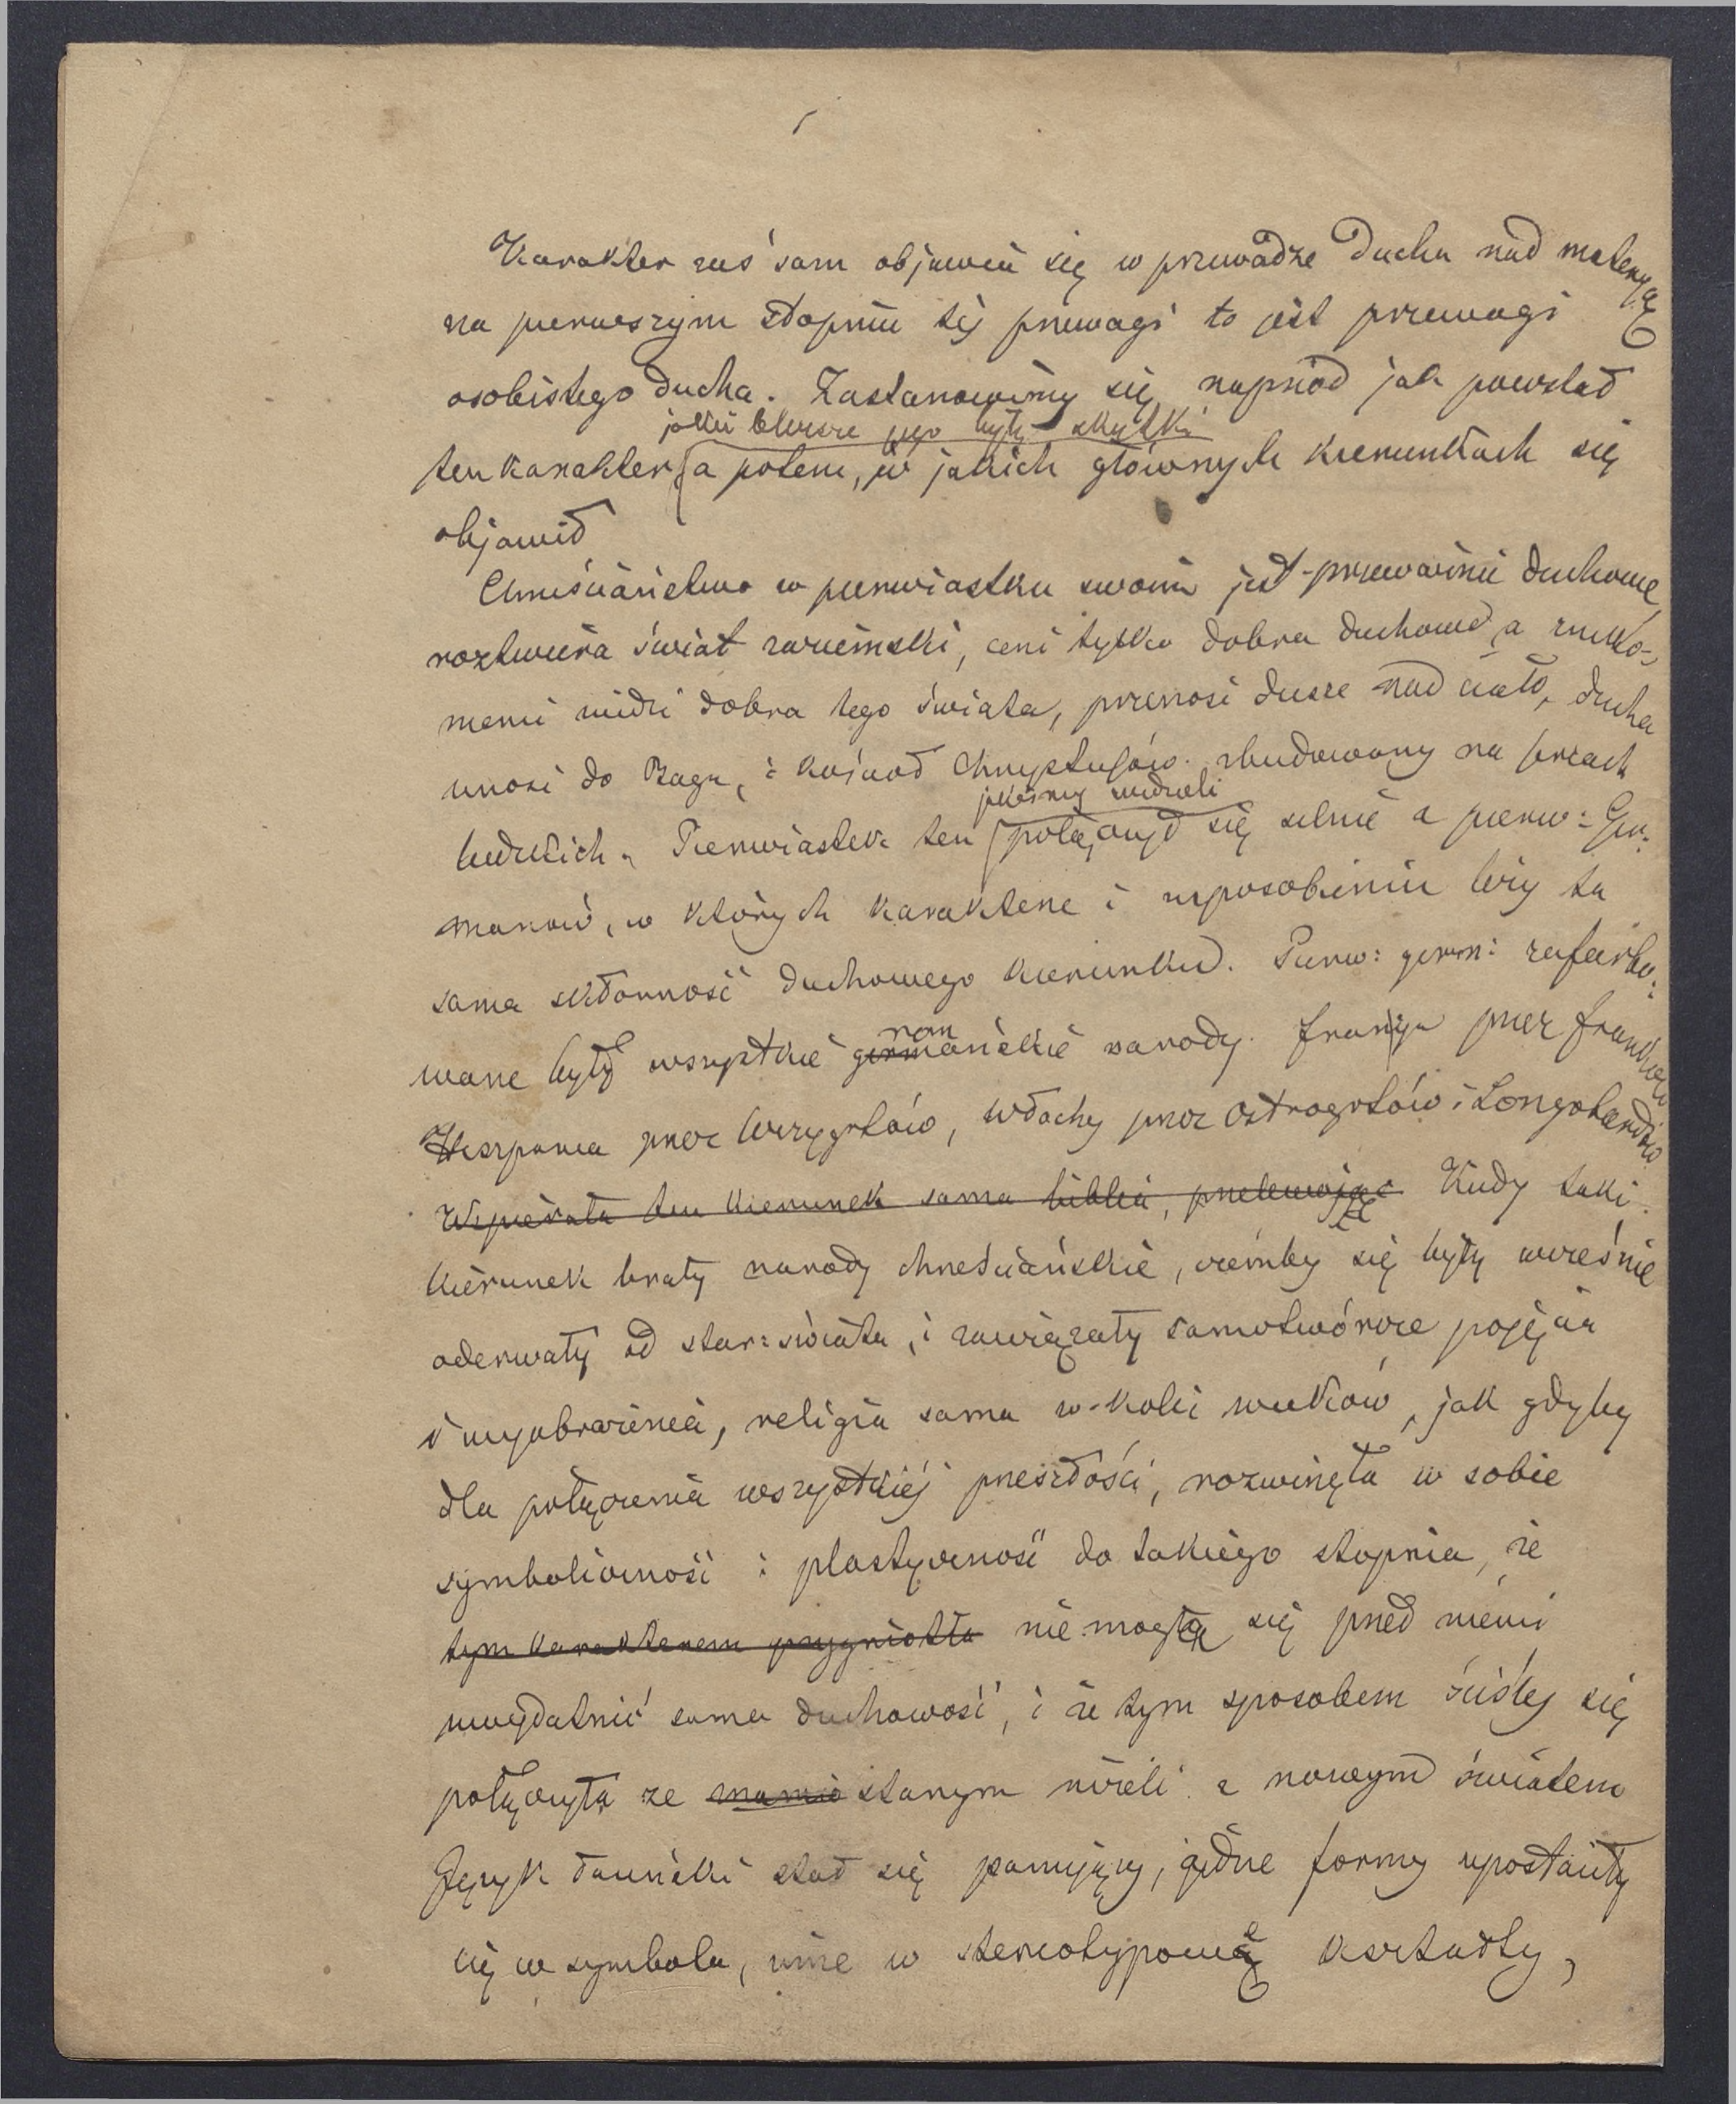 Karakter zaś sam objawia się w przewadze Ducha nad materyą
na pierwszym stopniu téj przewagi to jest przewagi
osobistego ducha. Zastanowimy się naprzód jak powstał
jakie bliższe jego były skutki
ten karakter a potem, w jakich głównych kierunkach się
objawił
Chrześciaństwo w pierwiastku swoim jest przeważnie duchowe,
roztwiera świat zaziemski, ceni tylko dobra duchowe, a zniko-
memi widzi dobra tego świata, przenosi dusze nad ciało, ducha
wnosi do Boga, i kościoł Chrystusów. zbudowany na sercach
jakeśmy widzieli
ludzkich. Pierwiastek ten połączył się silnie z pierw: Ger:
manów, w których karakterze i usposobieniu leży ta
sama skłonność duchowego kierunku. Pierw: germ: zafarbo:
rom
wane były wszystkie germańskie narody. Francya przez Franków
Hiszpania przez Wizygotów, Włochy przez Ostrogotów i Longobardów
Wspierała ten kierunek sama biblia, przelewając Kiedy taki
kierunek brały narody chrześciańskie, ażeby się były wcześnie
oderwały od star: świata, i zawiązały samotwórcze pojęcia
i wyobrażenia, religia sama w kolei wieków, jak gdyby
dla połączenia wszystkiéj przeszłości, rozwinęła w sobie
symboliczność i plastyczność do takiego stopnia, że
tym karakterem przygniotła nie mogła się przed niemi
uwydatnić sama duchowość, i że tym sposobem ściśléj się
połączyła ze starym niżeli z nowym światem
Język łaciński stał się panujący, jedne formy upostaciły
się w symbola, inne w stereotypowe kształty,